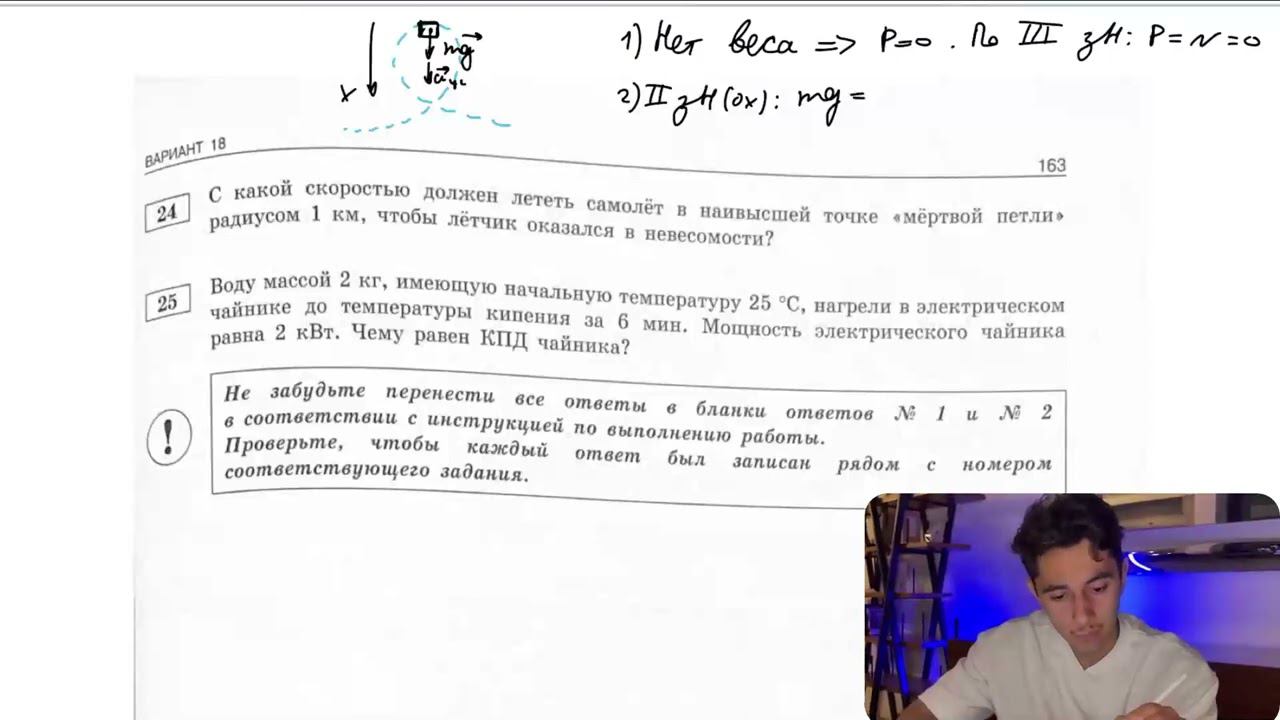 1) Нет веса => P=0. По III зН: P=N=0
mg
aцс
x
2) II зН (ox): mg =
ВАРИАНТ 18
163
24
С какой скоростью должен лететь самолёт в наивысшей точке «мёртвой петли»
радиусом 1 км, чтобы лётчик оказался в невесомости?
25
Воду массой 2 кг, имеющую начальную температуру 25 °С, нагрели в электрическом
чайнике до температуры кипения за 6 мин. Мощность электрического чайника
равна 2 кВт. Чему равен КПД чайника?
!
Не забудьте перенести все ответы в бланки ответов № 1 и № 2
в соответствии с инструкцией по выполнению работы.
Проверьте, чтобы каждый ответ был записан рядом с номером
соответствующего задания.